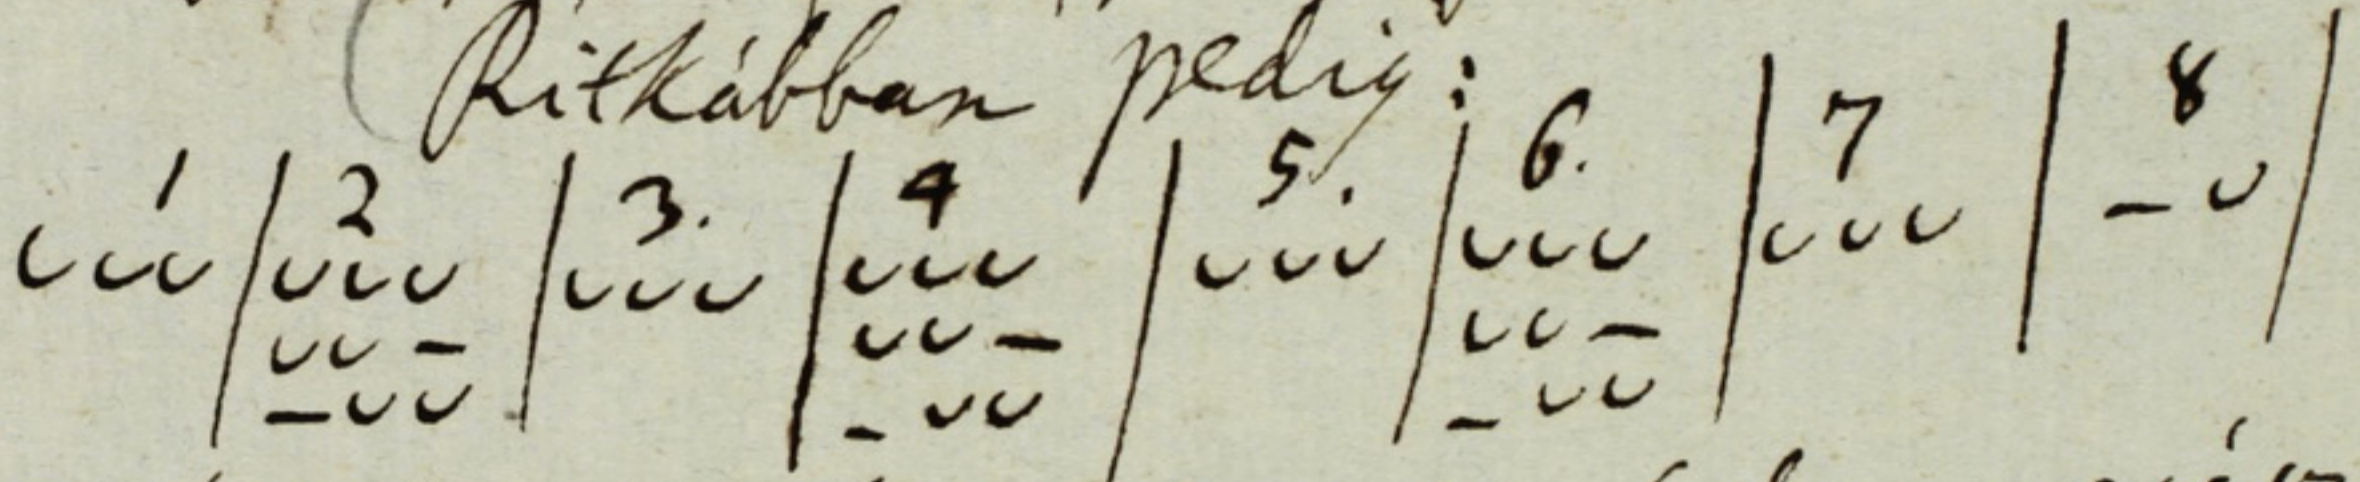 Ritkábban pedig:
1 | 2 | 3. | 4 | 5. | 6. | 7 | 8 |
◡◡◡ | ◡◡◡ | ◡◡◡ | ◡◡◡ | ◡◡◡ | ◡◡◡ | ◡◡◡ | –◡ |
◡◡– | ◡◡– | ◡◡–
–◡◡ | –◡◡ | –◡◡